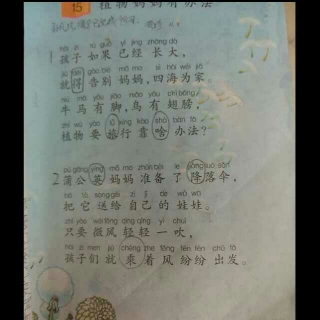 15 植物妈妈有办法
hái zi rú guǒ yǐ jīng zhǎng dà
1 孩子如果已经长大,
jiù děi gào bié mā ma sì hǎi wéi jiā
就得告别妈妈,四海为家
niú mǎ yǒu jiǎo niǎo yǒu chì bǎng
牛马有脚,鸟有翅膀,
zhí wù yào lǚ xíng kào shá bàn fǎ
植物要旅行靠啥办法?
pú gōng yīng mā ma zhǔn bèi le jiàng luò sǎn
2 蒲公英妈妈准备了降落伞,
bǎ tā sòng gěi zì jǐ de wá wa
把它送给自己的娃娃。
zhǐ yào wēi fēng qīng qīng yì chuī
只要微风轻轻一吹,
hái zi men jiù chéng zhe fēng fēn fēn chū fā
孩子们就乘着风纷纷出发。